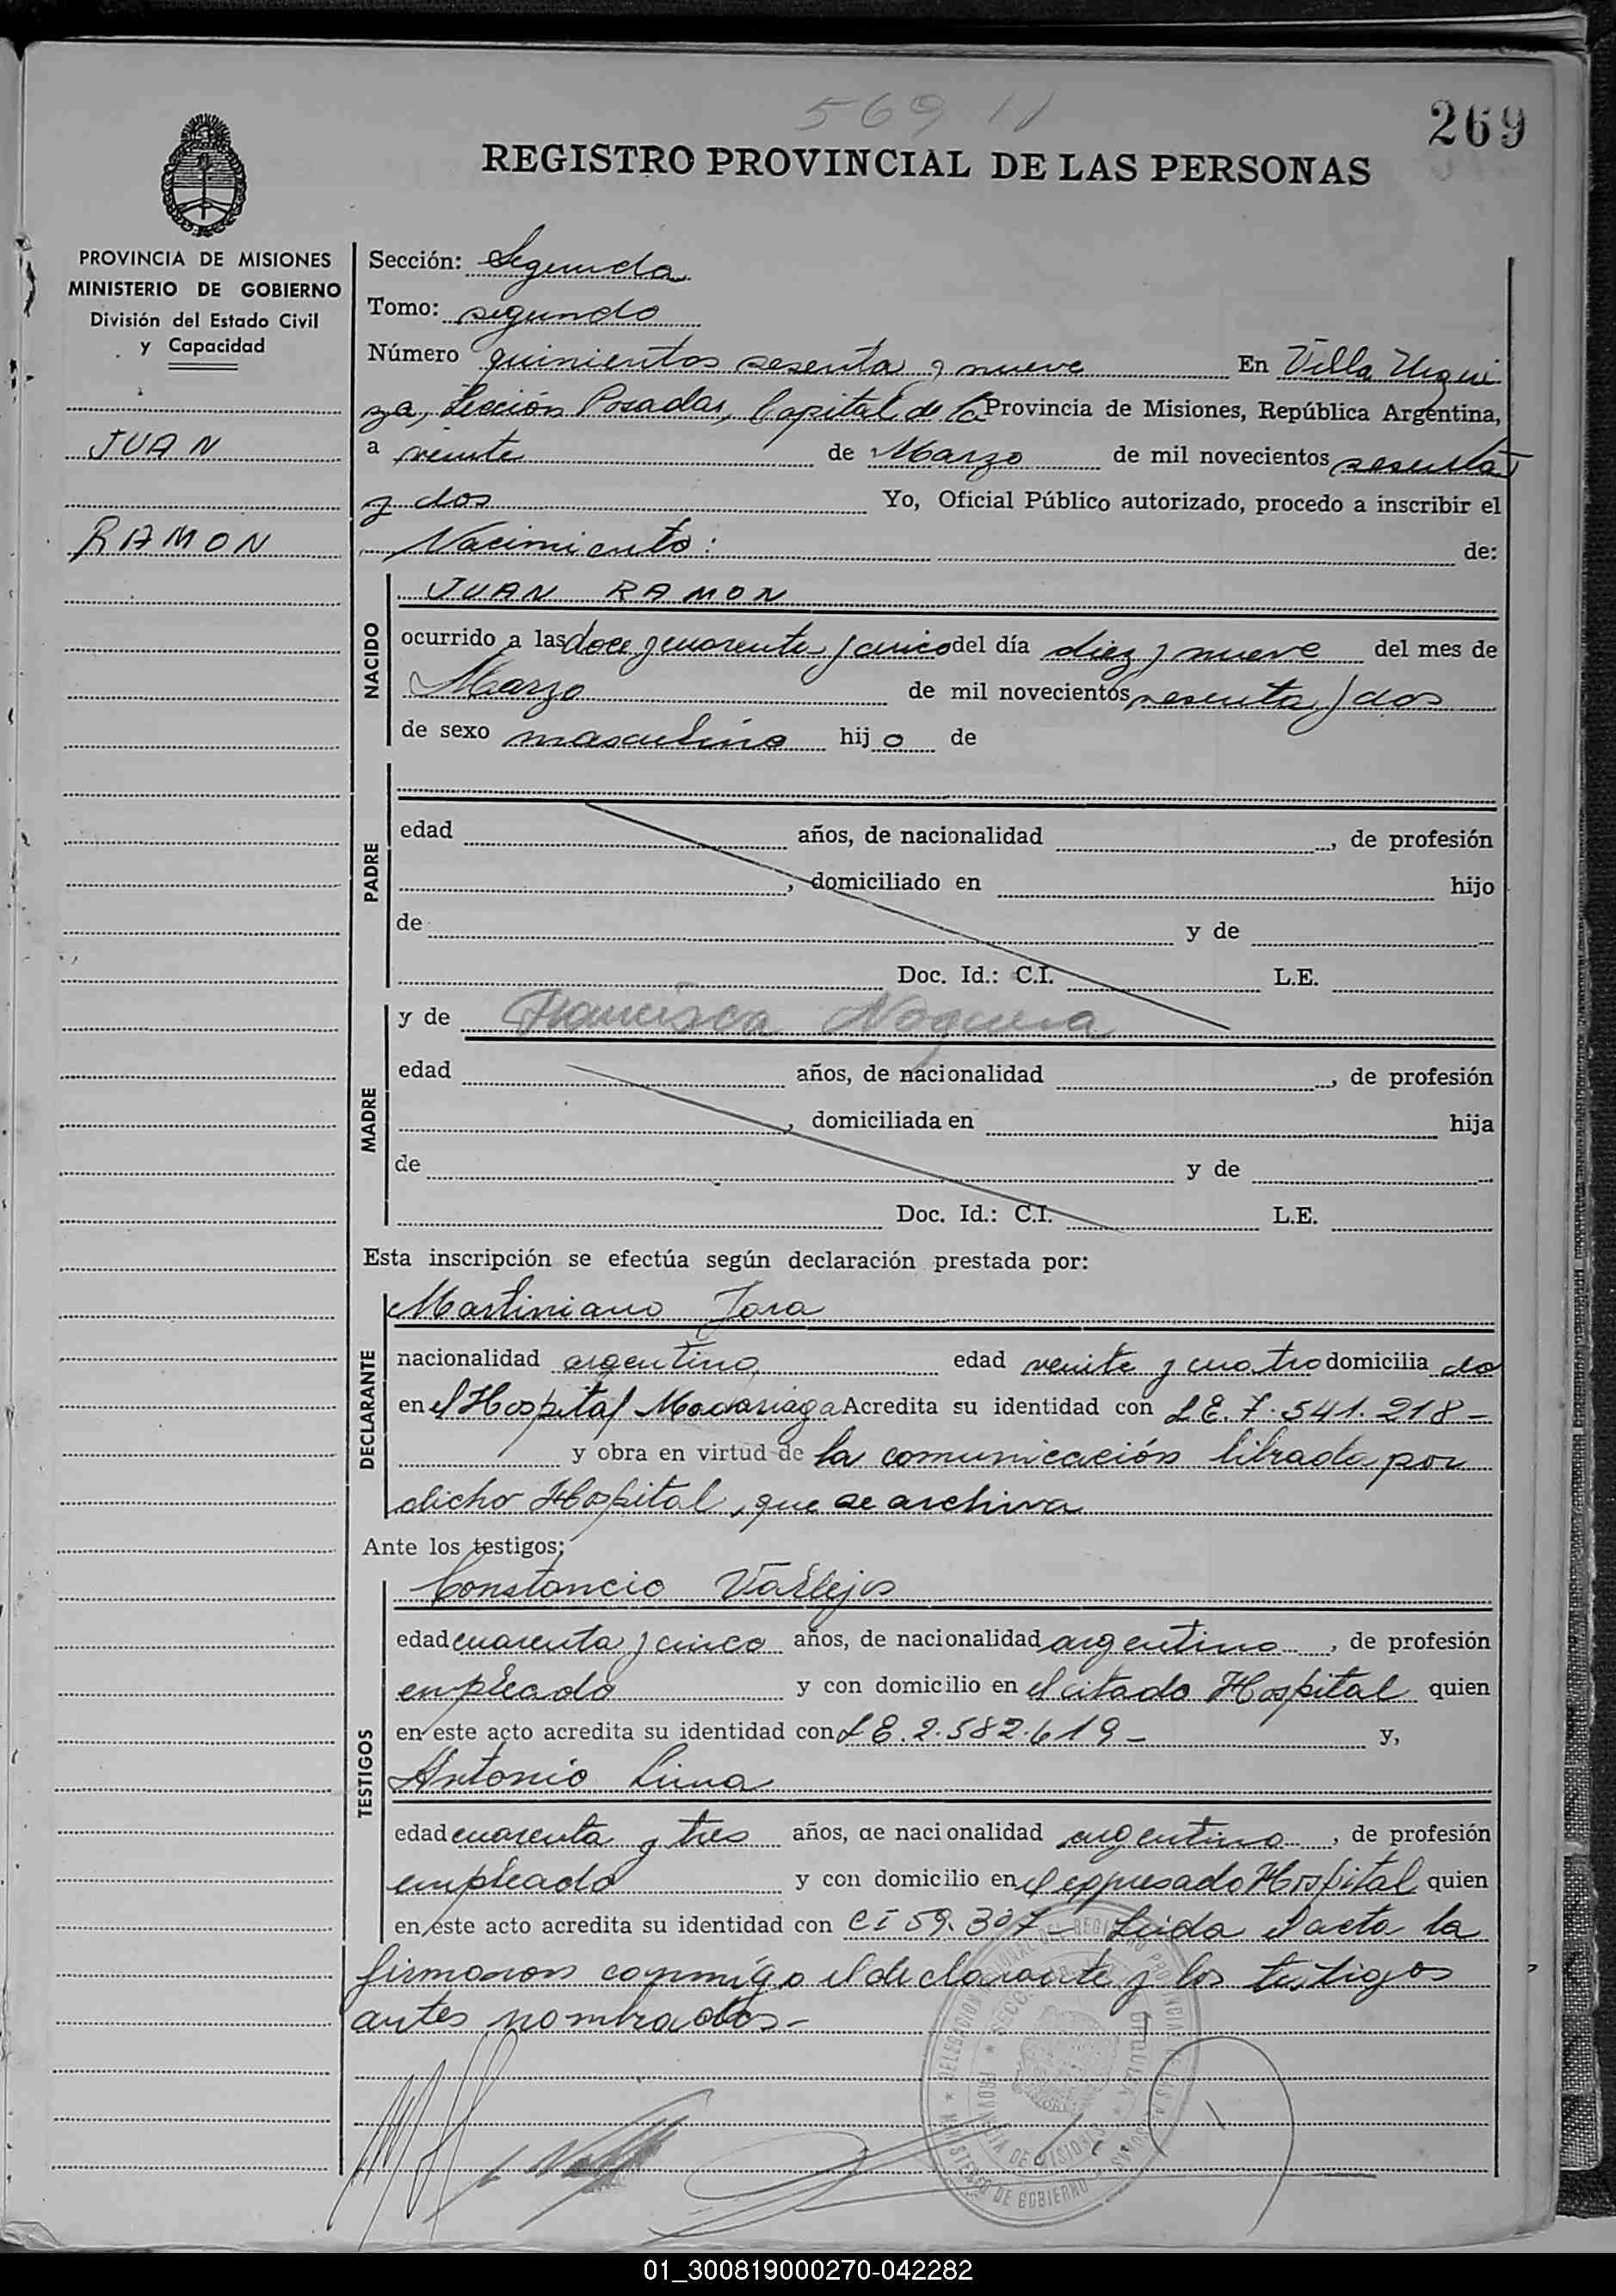 569 11
269
REGISTRO PROVINCIAL DE LAS PERSONAS
PROVINCIA DE MISIONES
MINISTERIO DE GOBIERNO
División del Estado Civil
y Capacidad
JUAN
RAMON
Sección: Segunda
Tomo: segundo
Número quinientos sesenta y nueve En Villa Urqui
za, Sección Posadas, Capital de la Provincia de Misiones, República Argentina,
a veinte de Marzo de mil novecientos sesenta
y dos Yo, Oficial Público autorizado, procedo a inscribir el
Nacimiento: de:
NACIDO
JUAN RAMON
ocurrido a las doce y cuarenta y cinco del día diez y nueve del mes de
Marzo de mil novecientos sesenta y dos
de sexo masculino hijo de
PADRE
edad años, de nacionalidad , de profesión
, domiciliado en hijo
de y de
Doc. Id.: C.I. L.E.
MADRE
y de Francisca Noguera
edad años, de nacionalidad , de profesión
, domiciliada en hija
de y de
Doc. Id.: C.I. L.E.
Esta inscripción se efectúa según declaración prestada por:
DECLARANTE
Martiniano Jara
nacionalidad argentino edad veinte y cuatro domicilia do
en el Hospital Madariaga Acredita su identidad con L E. 7.541.218-
y obra en virtud de la comunicación librada por
dicho Hospital, que se archiva
Ante los testigos;
TESTIGOS
Constancio Vallejos
edad cuarenta y cinco años, de nacionalidad argentino , de profesión
empleado y con domicilio en el citado Hospital quien
en este acto acredita su identidad con L E. 2.582.619- y,
Antonio Luna
edad cuarenta y tres años, de nacionalidad argentino , de profesión
empleado y con domicilio en el expresado Hospital quien
en este acto acredita su identidad con CI 59.307- Leida el acta la
firmaron conmigo el declarante y los testigos
antes nombrados.-
01_300819000270-042282